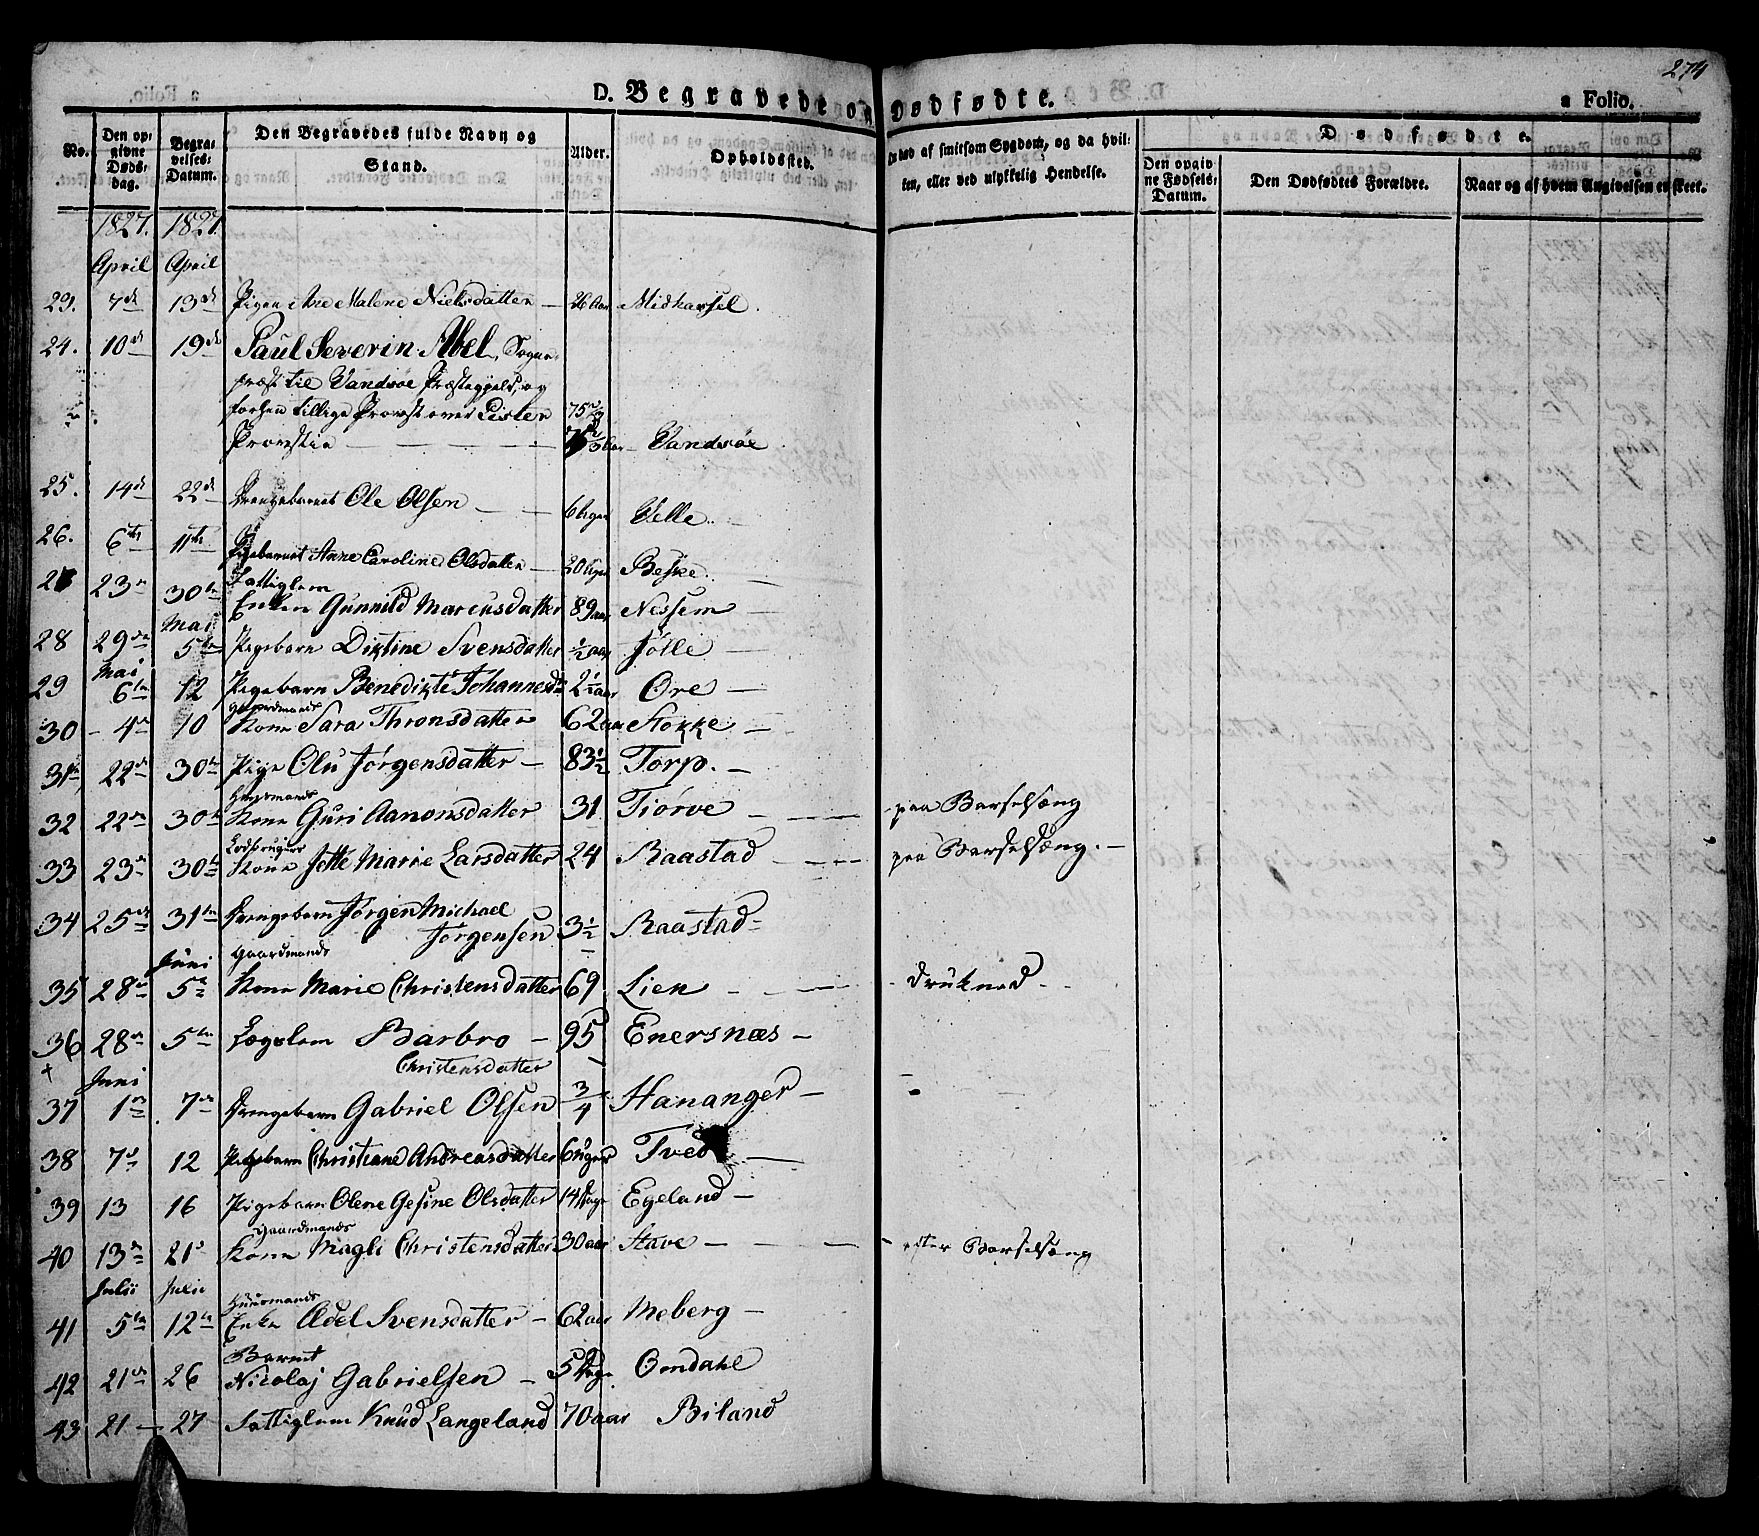 274
D. Begravede og Dødfødte.
a Folio.
No.
Den op-
givne
Døds-
dag.
Begra-
velses-
Datum.
Den Begravedes fulde Navn og
Stand.
Alder.
Opholdssted.
død af smitsom Sygdom, og da hvil-
ken, eller ved ulykkelig Hendelse.
Dødfødte.
Den opgiv-
ne Fødsels-
Datum.
Den Dødfødtes Forældre.
Naar og af hvem Angivelsen er skeet.
1827. 1827.
April April
23. 7de 13de Pigen Ane Malene Nielsdatter — 26 Aar Midhassel.
24. 10de 19de Paul Severin Abel, Sogne-
præst til Vandsøe Præstegjeld, og
forhen tillige Provst over Lister
Provstie — 75 Vandsøe
25. 14de 22de Drengebarnet Ole Olsen — 6 Uger Velle.
26. 6te 11te Pigebarnet Anne Caroline Olsdatter — 20 Uger Beske.
27 23de 30te Fattiglem
Enken Gunnild Marcusdatter 89 aar Nessem —
Mai
28 29de 5te Pigebarn Dixtine Svensdatter ½ aar Jølle —
Mai
29 6te 12 Pigebarn Benedikte Johannesdtr 2½ aar Ore —
Gaardmands
30 — 4de 10 Kone Sara Thronsdatter 62 aar Stokke —
31 22de 30te Pige Olu Jørgensdatter — 83½ Torp. —
Huusmands
32 22de 30te Kone Guri Aanonsdatter 31 Tiørve — paa Barselsæng
33 23de 30te Kone Jette Marie Larsdatter 24 Raastad — paa Barselsæng. —
34 25de 31te Drengebarn Jørgen Michael
Jørgensen 3½ Raastad —
Juni Gaardmands
35 28de 5te Kone Marie Christensdatter 69 Lien — druknad
36 28de 5te Lægslem Barbro — 95 Enersnæs —
Christensdatter
Juni
37 1ste 7de Drengebarn Gabriel Olsen ¾ Hananger —
38 7de 12 Pigebarn Christiane Andreasdatter 6 Uger Tved —
39 13 16 Pigebarn Olene Gesine Olsdatter 14 Dage Egeland —
Gaardmands
40 13de 21de Kone Magli Christensdatter 30 aar Stave — efter Barselsæng
Julii Julii
Huusmands
41 5te 12te Enke Adel Svensdatter — 62 aar Meberg —
Barnet
42 21de 26 Nicolaj Gabrielsen — 5 Dage Omdahl
43 21 — 27 Fattiglem Knud Langeland 70 aar Biland